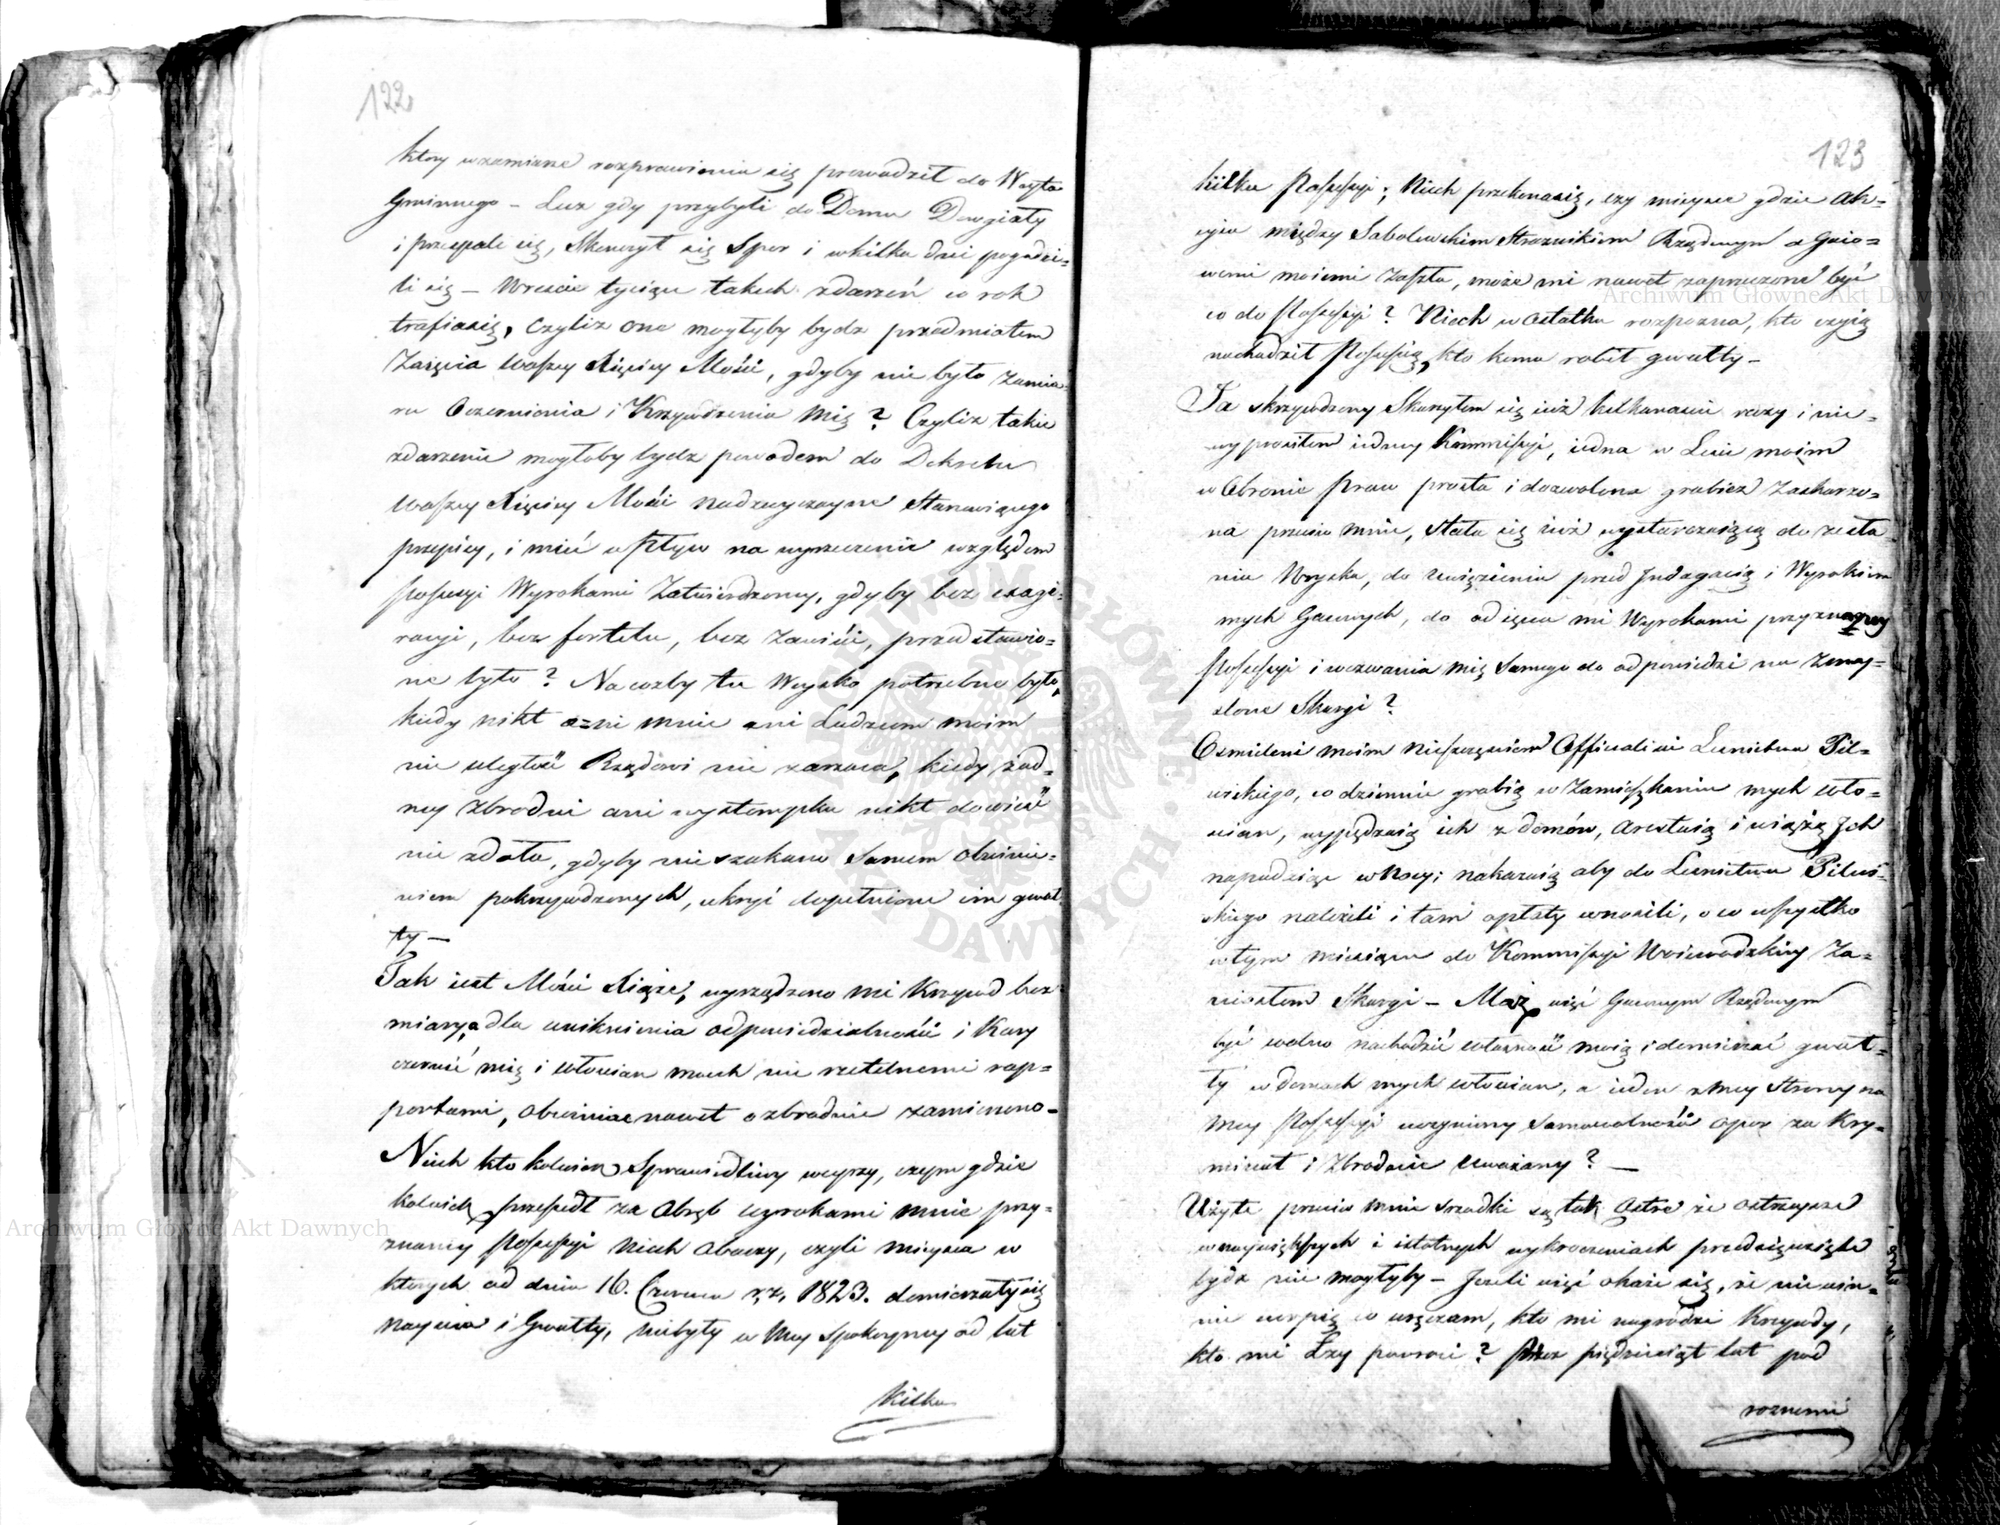 122
który wzamiarze rozprawienia się prowadził do Woyta
Gminnego – Lecz gdy przybyli do Domu Dowgiałły
i przespali się, Skończył się Spor i wkilka dni pogodzi=
li się – Wreście tysiące takich zdarzeń co rok
trafiasię, Czyliż one mogłyby bydz przedmiotem
Zaięcia Waszey Xiążęcey Mości, gdyby nie było zamia=
ru Oczernienia i Krzywdzenia Mię? Czyliż takie
zdarzenie mogłoby bydz powodem do Dekretu
Waszey Xiążęcey Mości nadzwyczayne Stanowiącego
przepisy, i mieć wpływ na wyrzeczenie względem
Possessyi Wyrokami Zatwierdzoney, gdyby bez exage=
racyi, bez fortelu, bez zawiści, przedstawio=
ne było? Nacożby tu Woysko potrzebne było,
kiedy nikt a=ni mnie ani Ludziom moim
nie uległość Rządowi nie zarzuca, kiedy żad=
ney Zbrodni ani występku nikt dowieść
nie zdoła, gdyby nie szukano Samem obwinie=
niem pokrzywdzonych, ukryć dopełnione im gwał=
ty –
Tak iest Mości Xiąże, wyrządzono mi Krzywd bez
miary, a dla uniknienia odpowiedzialności i Kary
czernić mię i włościan moich nie rzetelnemi rap=
portami, obwiniać nawet o zbrodnie zamierzono –
Niech kto kolwiek Sprawiedliwy weyrzy, czym gdzie
kolwiek przeszedł za Obręb wyrokami mnie przy=
znaney Possessyi Niech obaczy, czyli mieysca w
których od dnia 16. Czerwca rz. 1823. domierzały się
nayścia i Gwałty, niebyły w Mey Spokoyney od lat
kilku
123
kilku Possessyi; Niech przekonasię, czy mieysce gdzie Ak=
cyia między Sobolewskim Strażnikiem Rządowym a Gaio=
wemi moiemi zaszła, może mi nawet zaprzeczone być
co do Possessyi? Niech w ostatku rozpozna, kto czyią
nachodził Possessią, kto komu robił gwałty –
Ja skrzywdzony Skarżyłem się iuż kilkanaście razy i nie=
wyprosiłem iedney Kommissyi, iedna w Lesie moim
w Obronie praw prosta i dozwolona grabież zaskarżo=
na przeciw mnie, stała się iuż wystarczaiącą do zesła
nia Woyska, do uwięzienia przed Indagacią i Wyrokiem
mych Gaiowych, do odięcia mi Wyrokami przyznaney
Possessyi i wezwania mię Samego do odpowiedzi na zmy=
slone Skargi?
Osmieleni moim nieszczęściem Officialiści Leśnictwa Pil=
wiskiego, codziennie grabią w Zamieszkaniu mych wło=
scian, wypędzaią ich z domów, aresztuią i wiążą Ich
napadaiąc wNocy; nakazuią aby do Leśnictwa Pilwi=
skiego należeli i tam opłaty wnosili, o co wszystko
wtym miesiącu do Kommissyi Woiewodzkiey Za=
niosłem Skargi – Maż więc Gaiowym Rządowym
być wolno nachodzić własność moią i domierzać gwał=
ty w domach mych włoscian, a ieden zMey Strony na
Mey Possessyi uczyniony Samowolności opor za Kry=
minał i Zbrodnię Uważany? –
Użyte przeciw mnie srzodki są tak Ostre że ostrzeysze
w naywiększych i istotnych wykroczeniach przedsięwzięte
bydz nie mogłyby – Jeżeli więc okaże się, że niewin=
nie cierpię co ręczam, kto mi nagrodzi Krzywdy,
kto mi Łzy powroci? Przez pięćdziesiąt lat pod
roznemi